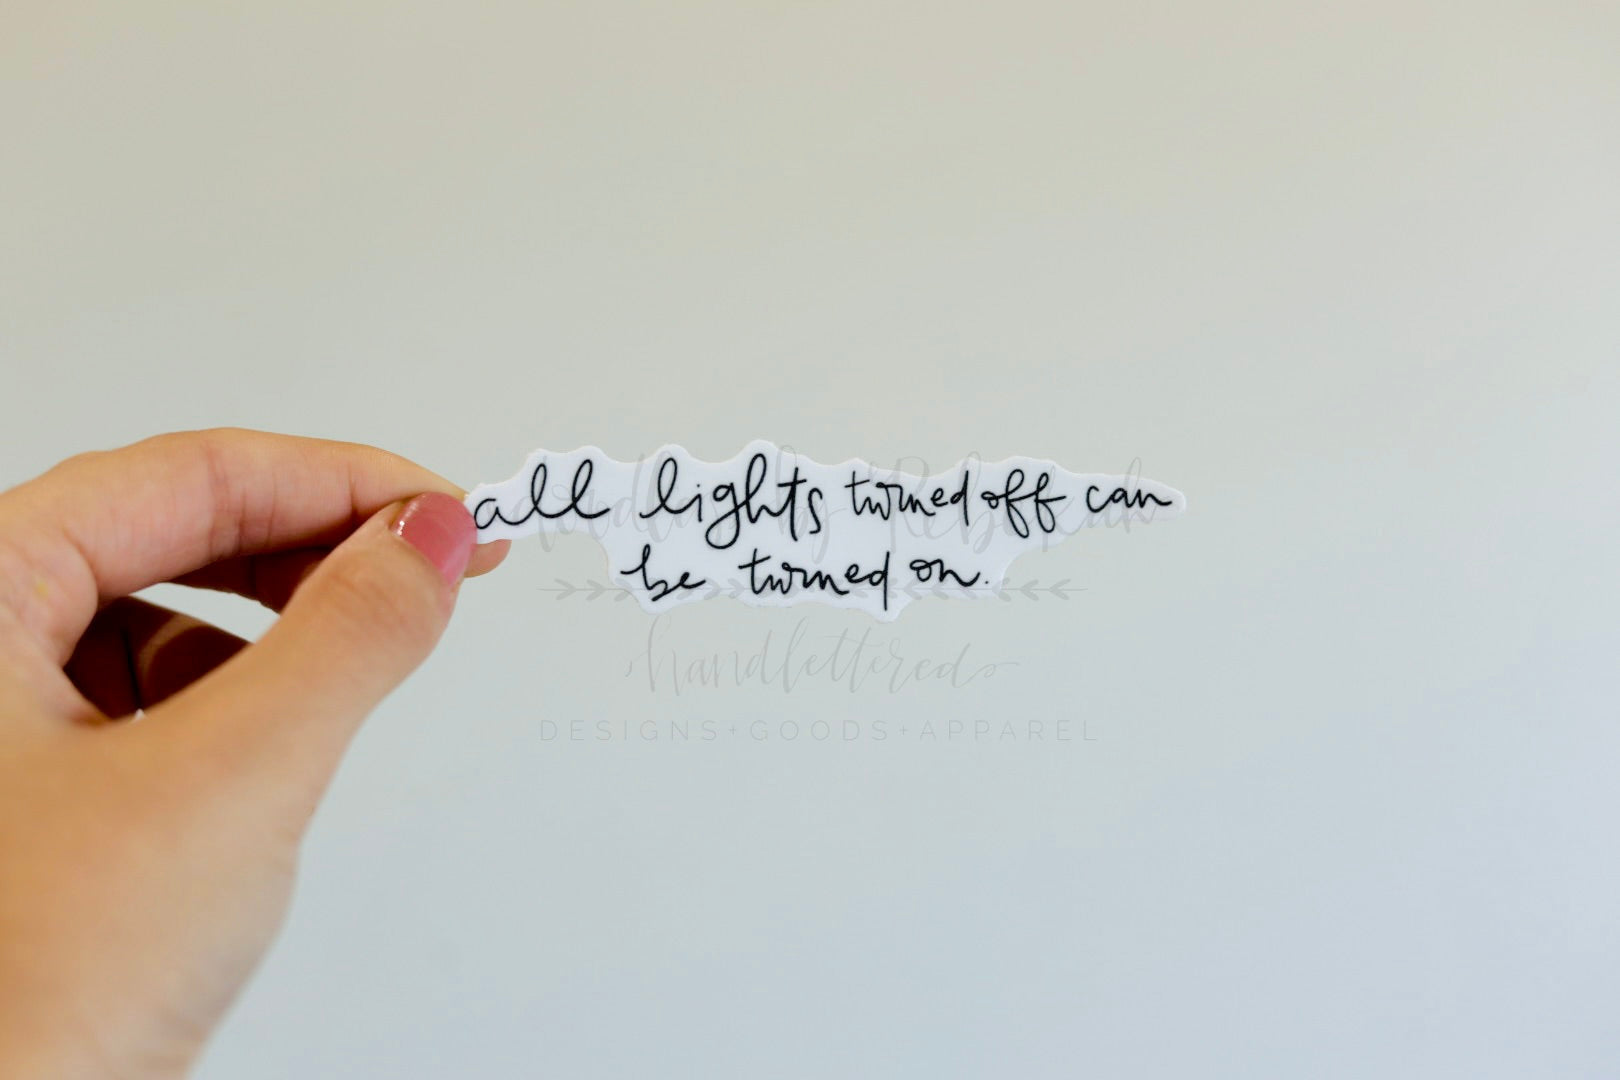 all lights turned off can
be turned on.
doodles by Rebekah
handlettered
DESIGNS+GOODS+APPAREL